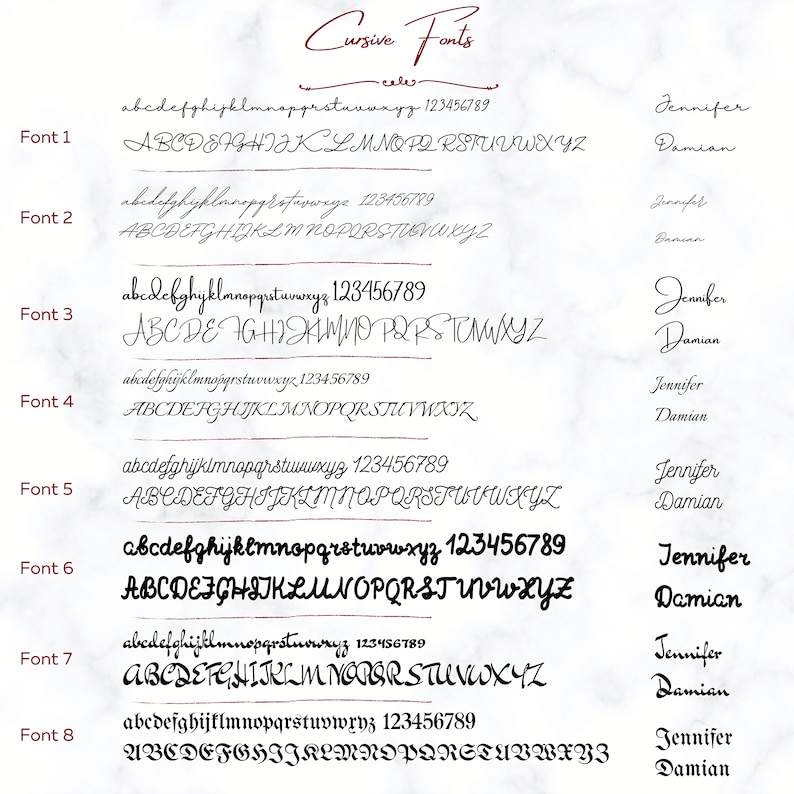 Cursive Fonts
Font 1
abcdefghijklmnopqrstuvwxyz 123456789
ABCDEFGHIJKLMNOPQRSTUVWXYZ
Jennifer
Damian
Font 2
abcdefghijklmnopqrstuvwxyz 123456789
ABCDEFGHIJKLMNOPQRSTUVWXYZ
Jennifer
Damian
Font 3
abcdefghijklmnopqrstuvwxyz 123456789
ABCDEFGHIJKLMNOPQRSTUVWXYZ
Jennifer
Damian
Font 4
abcdefghijklmnopqrstuvwxyz 123456789
ABCDEFGHIJKLMNOPQRSTUVWXYZ
Jennifer
Damian
Font 5
abcdefghijklmnopqrstuvwxyz 123456789
ABCDEFGHIJKLMNOPQRSTUVWXYZ
Jennifer
Damian
Font 6
abcdefghijklmnopqrstuvwxyz 123456789
ABCDEFGHIJKLMNOPQRSTUVWXYZ
Jennifer
Damian
Font 7
abcdefghijklmnopqrstuvwxyz 123456789
ABCDEFGHIJKLMNOPQRSTUVWXYZ
Jennifer
Damian
Font 8
abcdefghijklmnopqrstuvwxyz 123456789
ABCDEFGHIJKLMNOPQRSTUVWXYZ
Jennifer
Damian